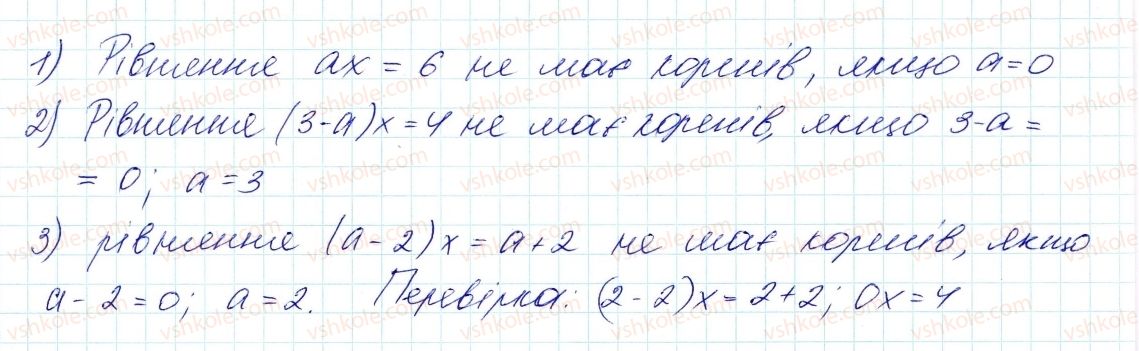 1) Рівняння ax = 6 не має коренів, якщо a=0
2) Рівняння (3-a)x=4 не має коренів, якщо 3-a=
= 0; a=3
3) рівняння (a-2)x=a+2 не має коренів, якщо
a-2=0; a=2. Перевірка: (2-2)x=2+2; 0x=4